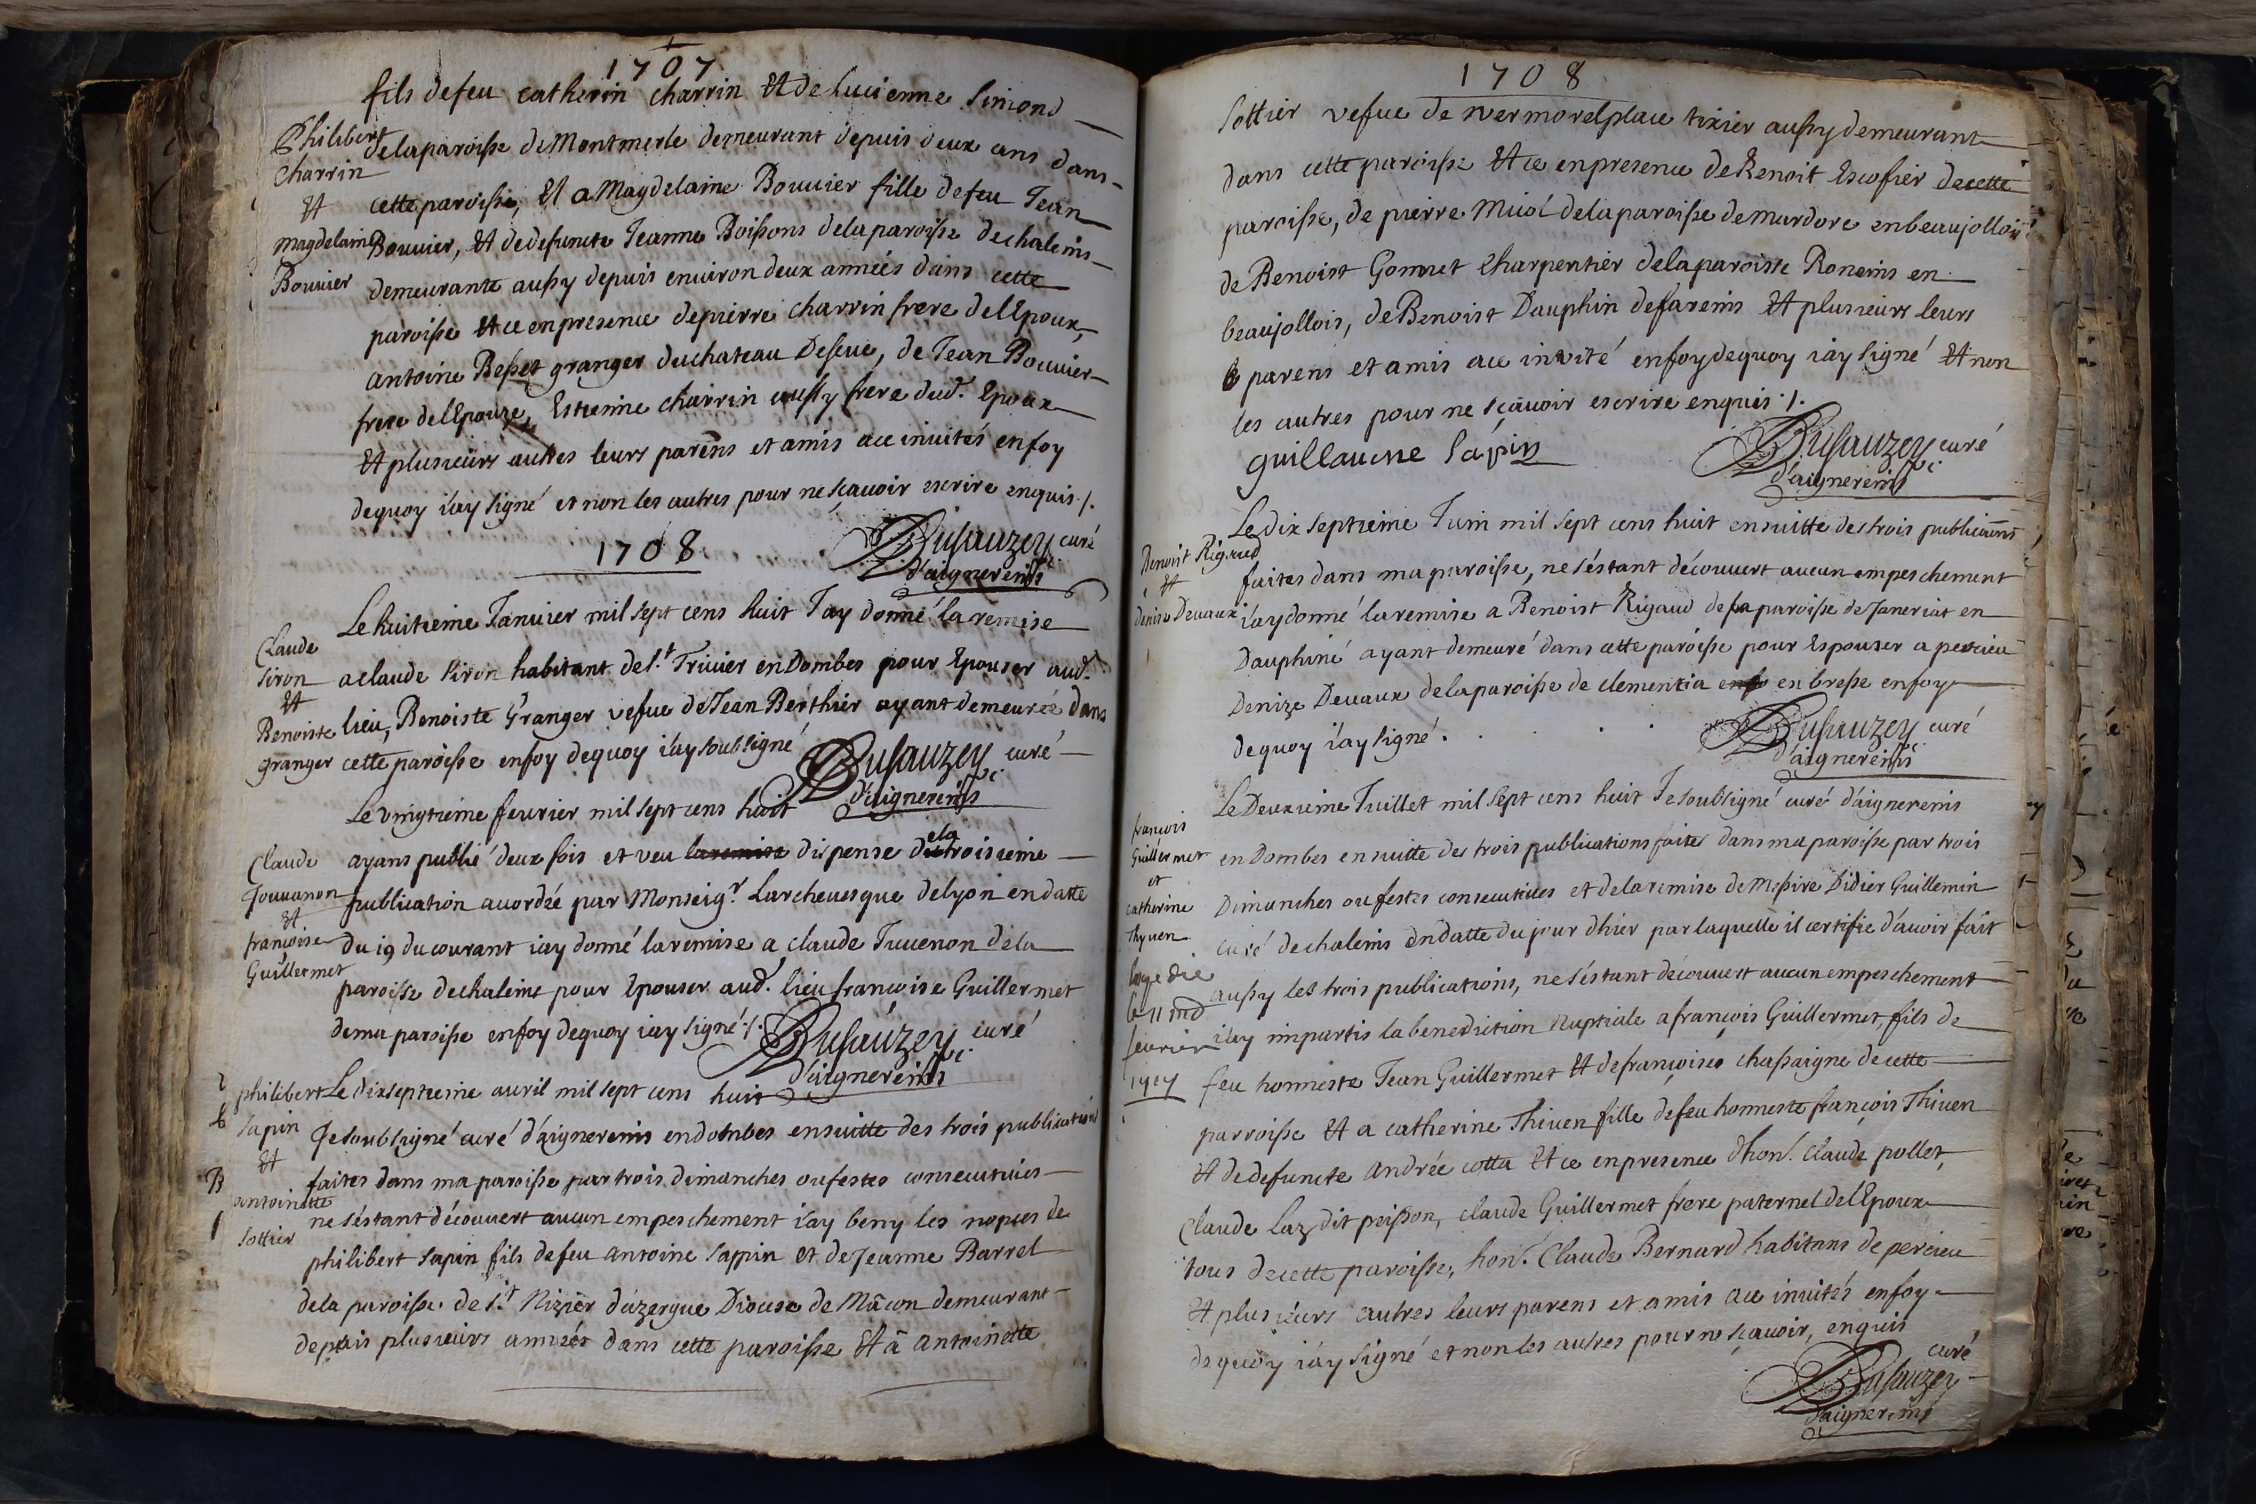 1707
fils de feu catherin charrin Et de lucienne Simond
Philibert
charrin
Et
magdelaine
Bouvier
de la paroisse de Montmerle demeurant depuis deux ans dans
cette paroisse, Et a Magdelaine Bouvier fille de feu Jean
Bouvier, Et de defuncte Jeanne Boissons de la paroisse de chaleins
demeurante aussy depuis environ deux années dans cette
paroisse Et ce en presence de pierre charrin frere de l'Epoux,
antoine Besset granger du chateau , de Jean Bouvier
frere de l'Epouze, Estienne charrin aussy frere dud. Epoux
Et plusieurs autres leurs parens et amis a ce invités en foy
de quoy i'ay signé et non les autres pour ne sçavoir escrire enquis ./.
Dusauzey curé
d'aignereins
1708
Claude
Siron
Et
Benoiste
granger
Le huitieme Janvier mil sept cens huit J'ay donné la remise
a claude Siron habitant de St. Trivier en Dombes pour Epouser aud.
lieu, Benoiste Granger vefue de Jean Berthier ayant demeurée dans
cette paroisse en foy de quoy i'ay soubsigné
Dusauzey curé
d'aignereins
Le vingtieme feurier mil sept cens huit
Claude
Jouuanon
Et
françoise
Guillermet
ayans publié deux fois et veu la remise dispense de la troisieme
publication accordée par Monseigr. Larcheuesque de lyon en datte
du 19 du courant i'ay donné la remise a claude Juuenon de la
paroisse de chaleins pour Epouser aud. lieu françoise Guillermet
de ma paroisse en foy de quoy i'ay signé ./.
Dusauzey curé
d'aignereins
philibert
Sapin
Et
antoinette
Sottier
Le dixseptieme auril mil sept cens huit
Je soubsigné curé d'aignereins en dombes ensuitte des trois publications
faites dans ma paroisse par trois dimanches ou festes consecutiues
ne s'éstant découuert aucun empeschement i'ay beny les nopces de
philibert sapin fils de feu antoine sappin et de Jeanne Barrel
de la paroisse de St. Nizier d'azergue Diocese de Mâcon demeurant
depuis plusieurs années dans cette paroisse Et à antoinette
1708
Sottier vefue de vermorel place tixier aussy demeurant
dans cette paroisse Et ce en presence de Benoit Escofier de cette
paroisse, de pierre Muiol de la paroisse de mardore en beaujollois
de Benoist Gonnet Charpentier de la paroisse Roneins en
beaujollois, de Benoist Dauphin de fareins Et plusieurs leurs
parens et amis a ce inuité en foy de quoy i'ay signé Et non
les autres pour ne sçauoir escrire enquis ./.
guillaume Sapin
Dusauzey curé
d'aignereins
Benoist Rigaud
et
denise Deuaux
Le dix septieme Juin mil sept cens huit ensuitte des trois publicaõns
faites dans ma paroisse, ne s'éstant découuert aucun empeschement
i'ay donné la remise a Benoist Rigaud de la paroisse de Janeriat en
Dauphiné ayant demeuré dans cette paroisse pour Espouser a percieu
Denize Deuaux de la paroisse de clementia en bresse en foy
de quoy i'ay signé.
Dusauzey curé
d'aignereins
françois
Guillermet
et
catherine
thyuen
le 11 md
feurier
Le Deuxieme Juillet mil sept cens huit Je soubsigné curé d'aignereins
en Dombes ensuitte des trois publications faites dans ma paroisse par trois
Dimanches ou festes consecutiues et de la remise de Messire Didier Guillemin
curé de chaleins en datte du jour dhier par laquelle il certifie d'auoir fait
aussy les trois publications, ne s'éstant découuert aucun empeschement
i'ay impartis la benediction nuptiale a françois Guillermet, fils de
feu honneste Jean Guillermet Et de françoise chassaigne de cette
parroisse Et a catherine Thiuen fille de feu honneste françois Thiuen
Et de defuncte andrée cotta Et ce en presence d'hon. Claude pollet,
Claude Laz dit peisson, claude Guillermet frere paternel de l'Epoux
tous de cette paroisse, hon. Claude Bernard habitans de percieu
Et plusieurs autres leurs parens et amis a ce inuités en foy
de quoy i'ay signé et non les autres pour ne sçauoir, enquis
Dusauzey curé
d'aignereins